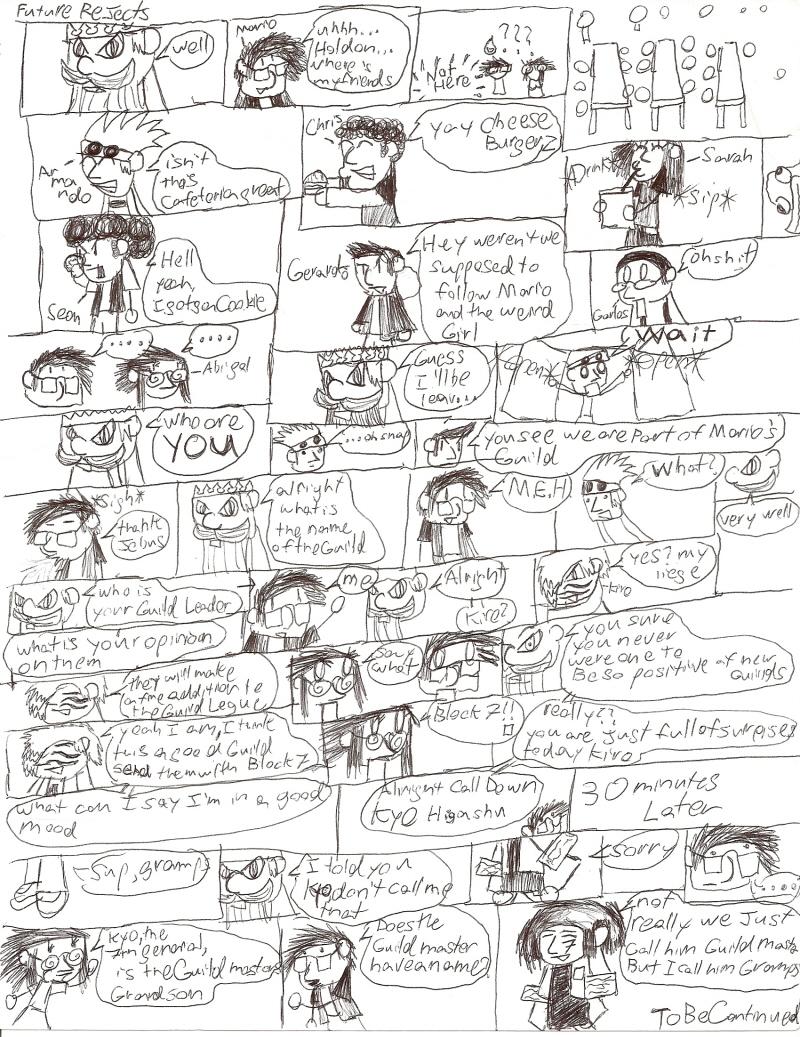 Future Rejects
well
Mario
uhhh...
Holdon...
where is
my friends
Not
Here
???
Armando
isn't
this
Cafeteria great
Chris
yay cheese
Burgerz
*Drink*
Sarah
*Sip*
Sean
Hell
yeah,
I gotsa Cookie
Gerardo
Hey weren't we
supposed to
follow Mario
and the weird
Girl
Carlos
oh shit
....
....
Abigal
Guess
I'll be
leav...
*open*
Wait
*open*
who are
YOU
...oh snap
you see we are Part of Mario's
Guild
*Sigh*
thank
Jebus
alright
what is
the name
of the Guild
M.E.H
What?
very well
who is
your Guild Leader
me
Alright
Kiro?
yes? my
liege
Kiro
what is your opinion
on them
They will make
a fine addition to
the Guild Legue
Say
what
you sure
you never
were one to
Be so positive of new
Guilds
yeah I am, I think
this a good Guild
send them with Block 7
Block 7!!
really??
you are just full of surprises
today Kiro
what can I say I'm in a good
mood
Alright Call Down
Kyo Higashu
30 minutes
Later
Sup, gramps
I told you
Kyo don't call me
that
sorry
....
Kyo, the
7th general,
is the Guild masters
Grandson
Does the
Guild master
have a name?
not
really we Just
call him Guild Mast
But I call him Gramps
To Be Continued